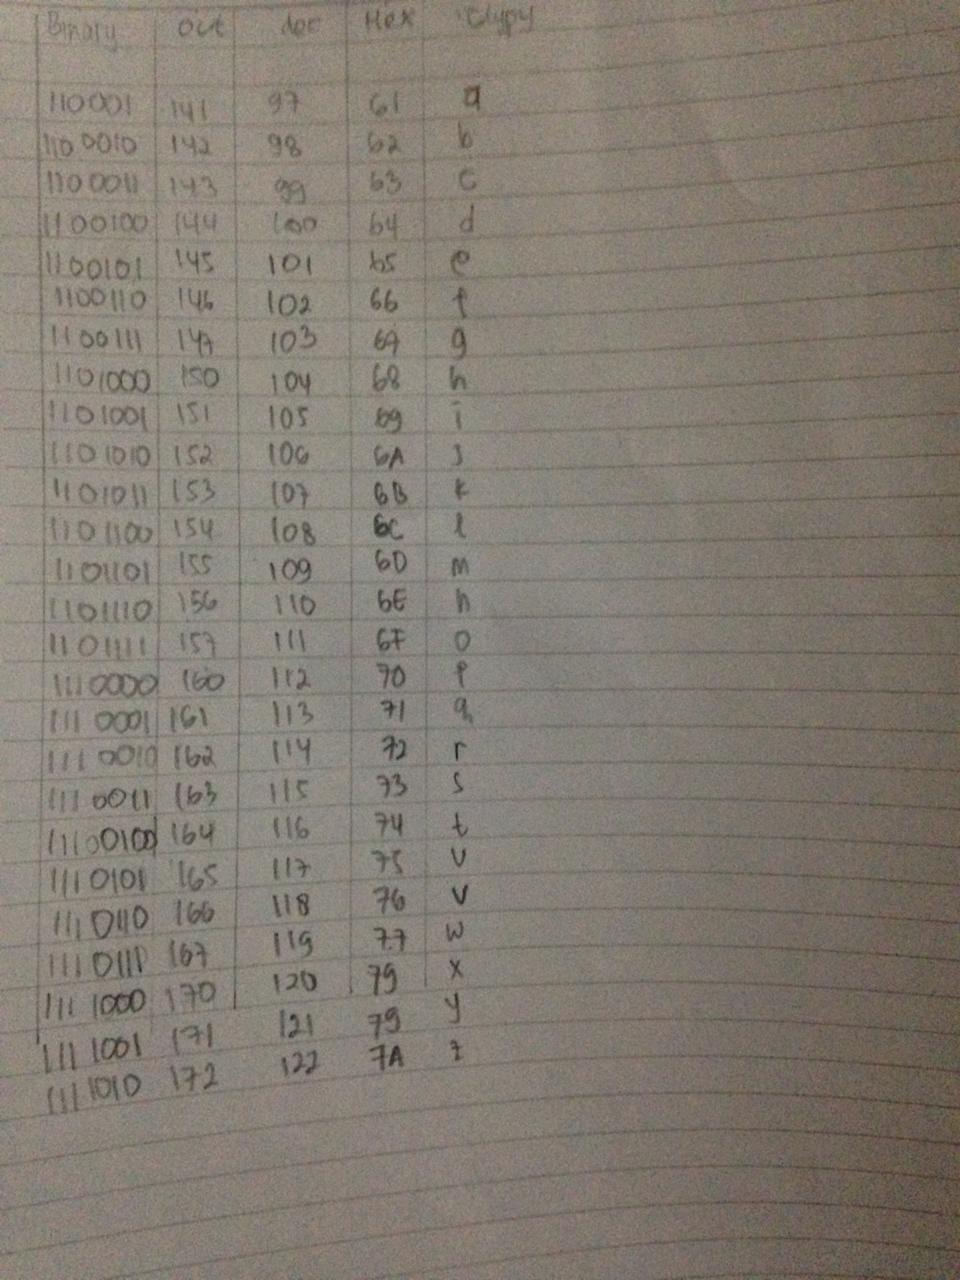 Binary Oct dec Hex Glypy
110001 141 97 61 a
1100010 142 98 62 b
1100011 143 99 63 c
1100100 144 100 64 d
1100101 145 101 65 e
1100110 146 102 66 f
1100111 147 103 67 g
1101000 150 104 68 h
1101001 151 105 69 i
1101010 152 106 6A j
1101011 153 107 6B k
1101100 154 108 6C l
1101101 155 109 6D m
1101110 156 110 6E n
1101111 157 111 6F o
1110000 160 112 70 p
1110001 161 113 71 q
1110010 162 114 72 r
1110011 163 115 73 s
11100100 164 116 74 t
1110101 165 117 75 u
1110110 166 118 76 v
1110111 167 119 77 w
1111000 170 120 79 x
1111001 171 121 79 y
1111010 172 122 7A z